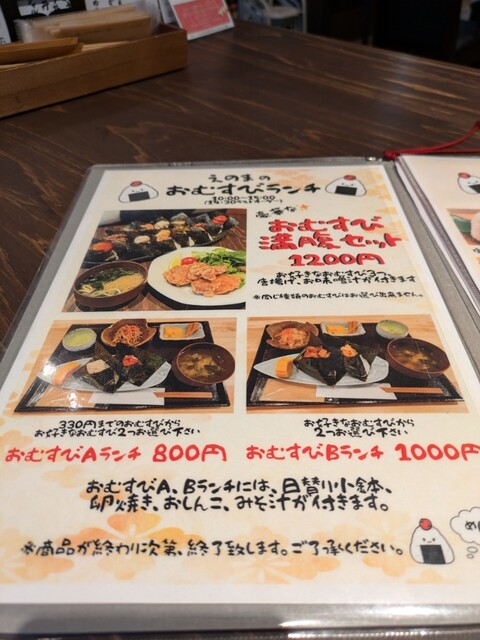 えのまの
おむすびランチ
10:00〜15:00
(14:30ラストオーダー)
豪華な
おむすび
満腹セット
1200円
お好きなおむすび3つ、
唐揚げ、お味噌汁が付きます
※同じ種類のおむすびはお選び出来ません。
330円までのおむすびから
お好きなおむすび2つお選び下さい
おむすびAランチ 800円
お好きなおむすびから
2つお選び下さい
おむすびBランチ 1000円
おむすびA、Bランチには、日替り小鉢、
卵焼き、おしんこ、みそ汁が付きます。
※商品が終わり次第、終了致します。ご了承ください。